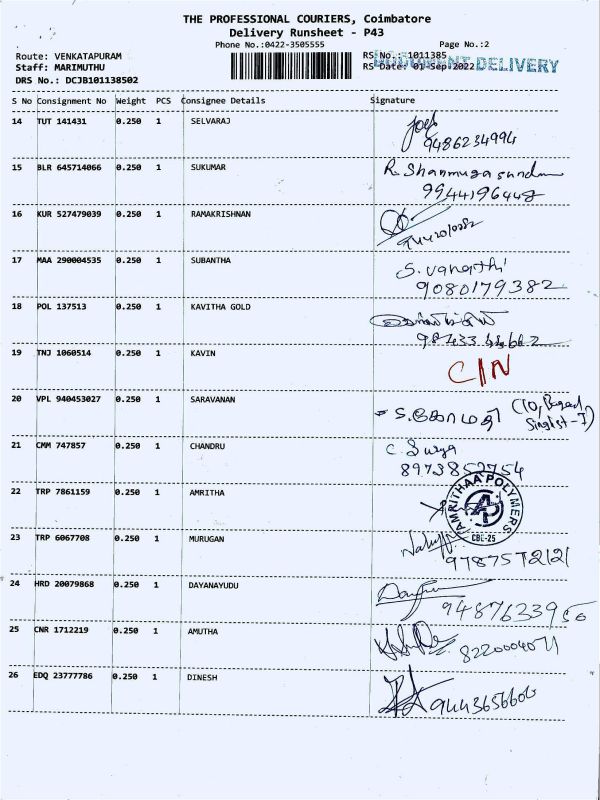 THE PROFESSIONAL COURIERS, Coimbatore
Delivery Runsheet - P43
Phone No.:0422-3505555 Page No.:2
Route: VENKATAPURAM RS No.:1011385
Staff: MARIMUTHU RS Date: 01-Sep-2022 DOCUMENT DELIVERY
DRS No.: DCJB101138502
S No Consignment No Weight PCS Consignee Details Signature
14 TUT 141431 0.250 1 SELVARAJ
9486234994
15 BLR 645714066 0.250 1 SUKUMAR R. Shanmugasundam
16 KUR 527479039 0.250 1 RAMAKRISHNAN
17 MAA 290004535 0.250 1 SUBANTHA S. vanathi
9080179382
18 POL 137513 0.250 1 KAVITHA GOLD
19 TNJ 1060514 0.250 1 KAVIN C/N
20 VPL 940453027 0.250 1 SARAVANAN
21 CMM 747857 0.250 1 CHANDRU C. Surya
8973852754
22 TRP 7861159 0.250 1 AMRITHA AMRITHAA POLYMERS
AP
CBE-25
23 TRP 6067708 0.250 1 MURUGAN
24 HRD 20079868 0.250 1 DAYANAYUDU
9487633950
25 CNR 1712219 0.250 1 AMUTHA
8220004071
26 EDQ 23777786 0.250 1 DINESH
9443656606